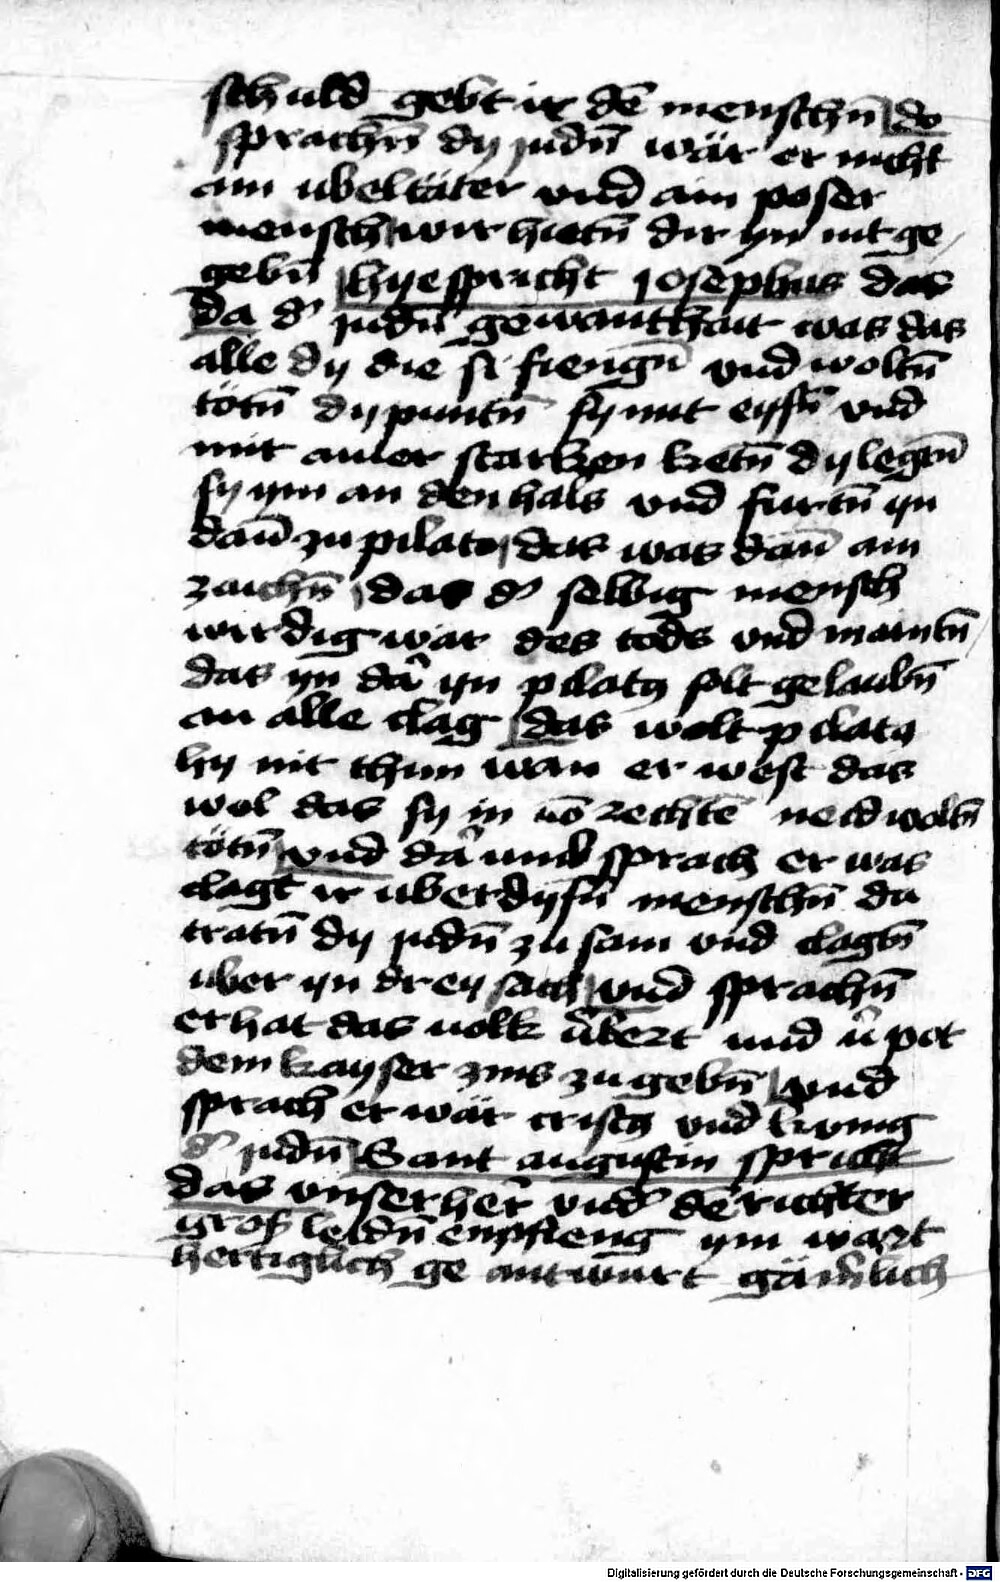 schuld gebt ir dē menschn̄ do
sprachn̄ dy judn̄ wär er nicht
ain ubeltäter vnd ain poser
mensch wir hietn̄ dir yn nit ge
gebn̄ hye spricht josephus das
da d' judn̄ gewanthait was das
alle dy die si fiengn̄ vnd woltn̄
tötn̄ dy puntn̄ sy mit eysn̄ vnd
mit ainer starken ketn̄ dy legtn̄
sy ym an den hals vnd furtn̄ yn
dan̄ zu pilato das was dan̄ ain
zaichn̄ das d' selbig mensch
wirdig wär des tods vnd maintn̄
das yn dā yn pilatꝰ solt gelaubn̄
an alle clag das wolt pilatꝰ
hy nit thun wan er west das
wol das sy in uō rechtē neid woltn̄
tötn̄ vnd dā umb sprach er was
clagt ir uber dysn̄ menschn̄ da
tratn̄ dy judn̄ zu sam vnd clagtn̄
uber yn drey sach vnd sprachn̄
er hat das uolk ūkert vnd ū pot
dem kayser zins zu gebn̄ vnd
sprach er wär cristꝰ vnd kunig
d' judn̄ Sant augustin spricht
das vnser her vnd' dē richter
gros leidn̄ enpfieng ym wart
hertiglich ge antwurt